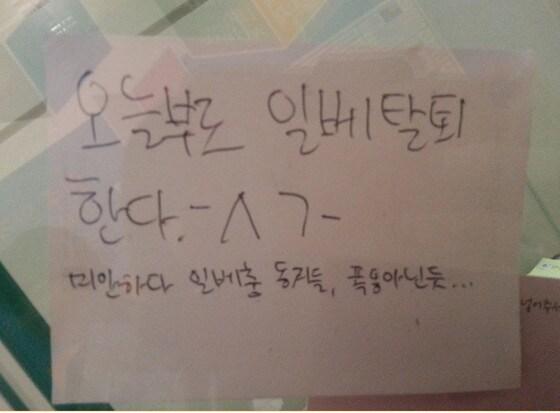 오늘부로 일베탈퇴
한다.-ㅅㄱ-
미안하다 일베충 동지들, 폭동아닌듯...
넣어주서